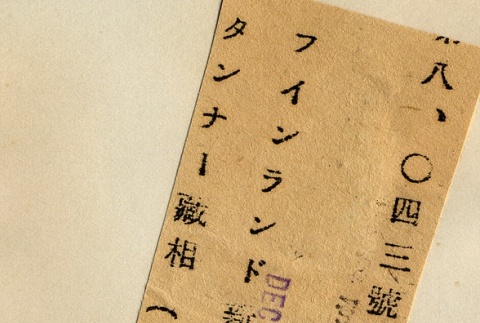 第八、〇四三號
フインランド新
タンナー藏相（
DEC